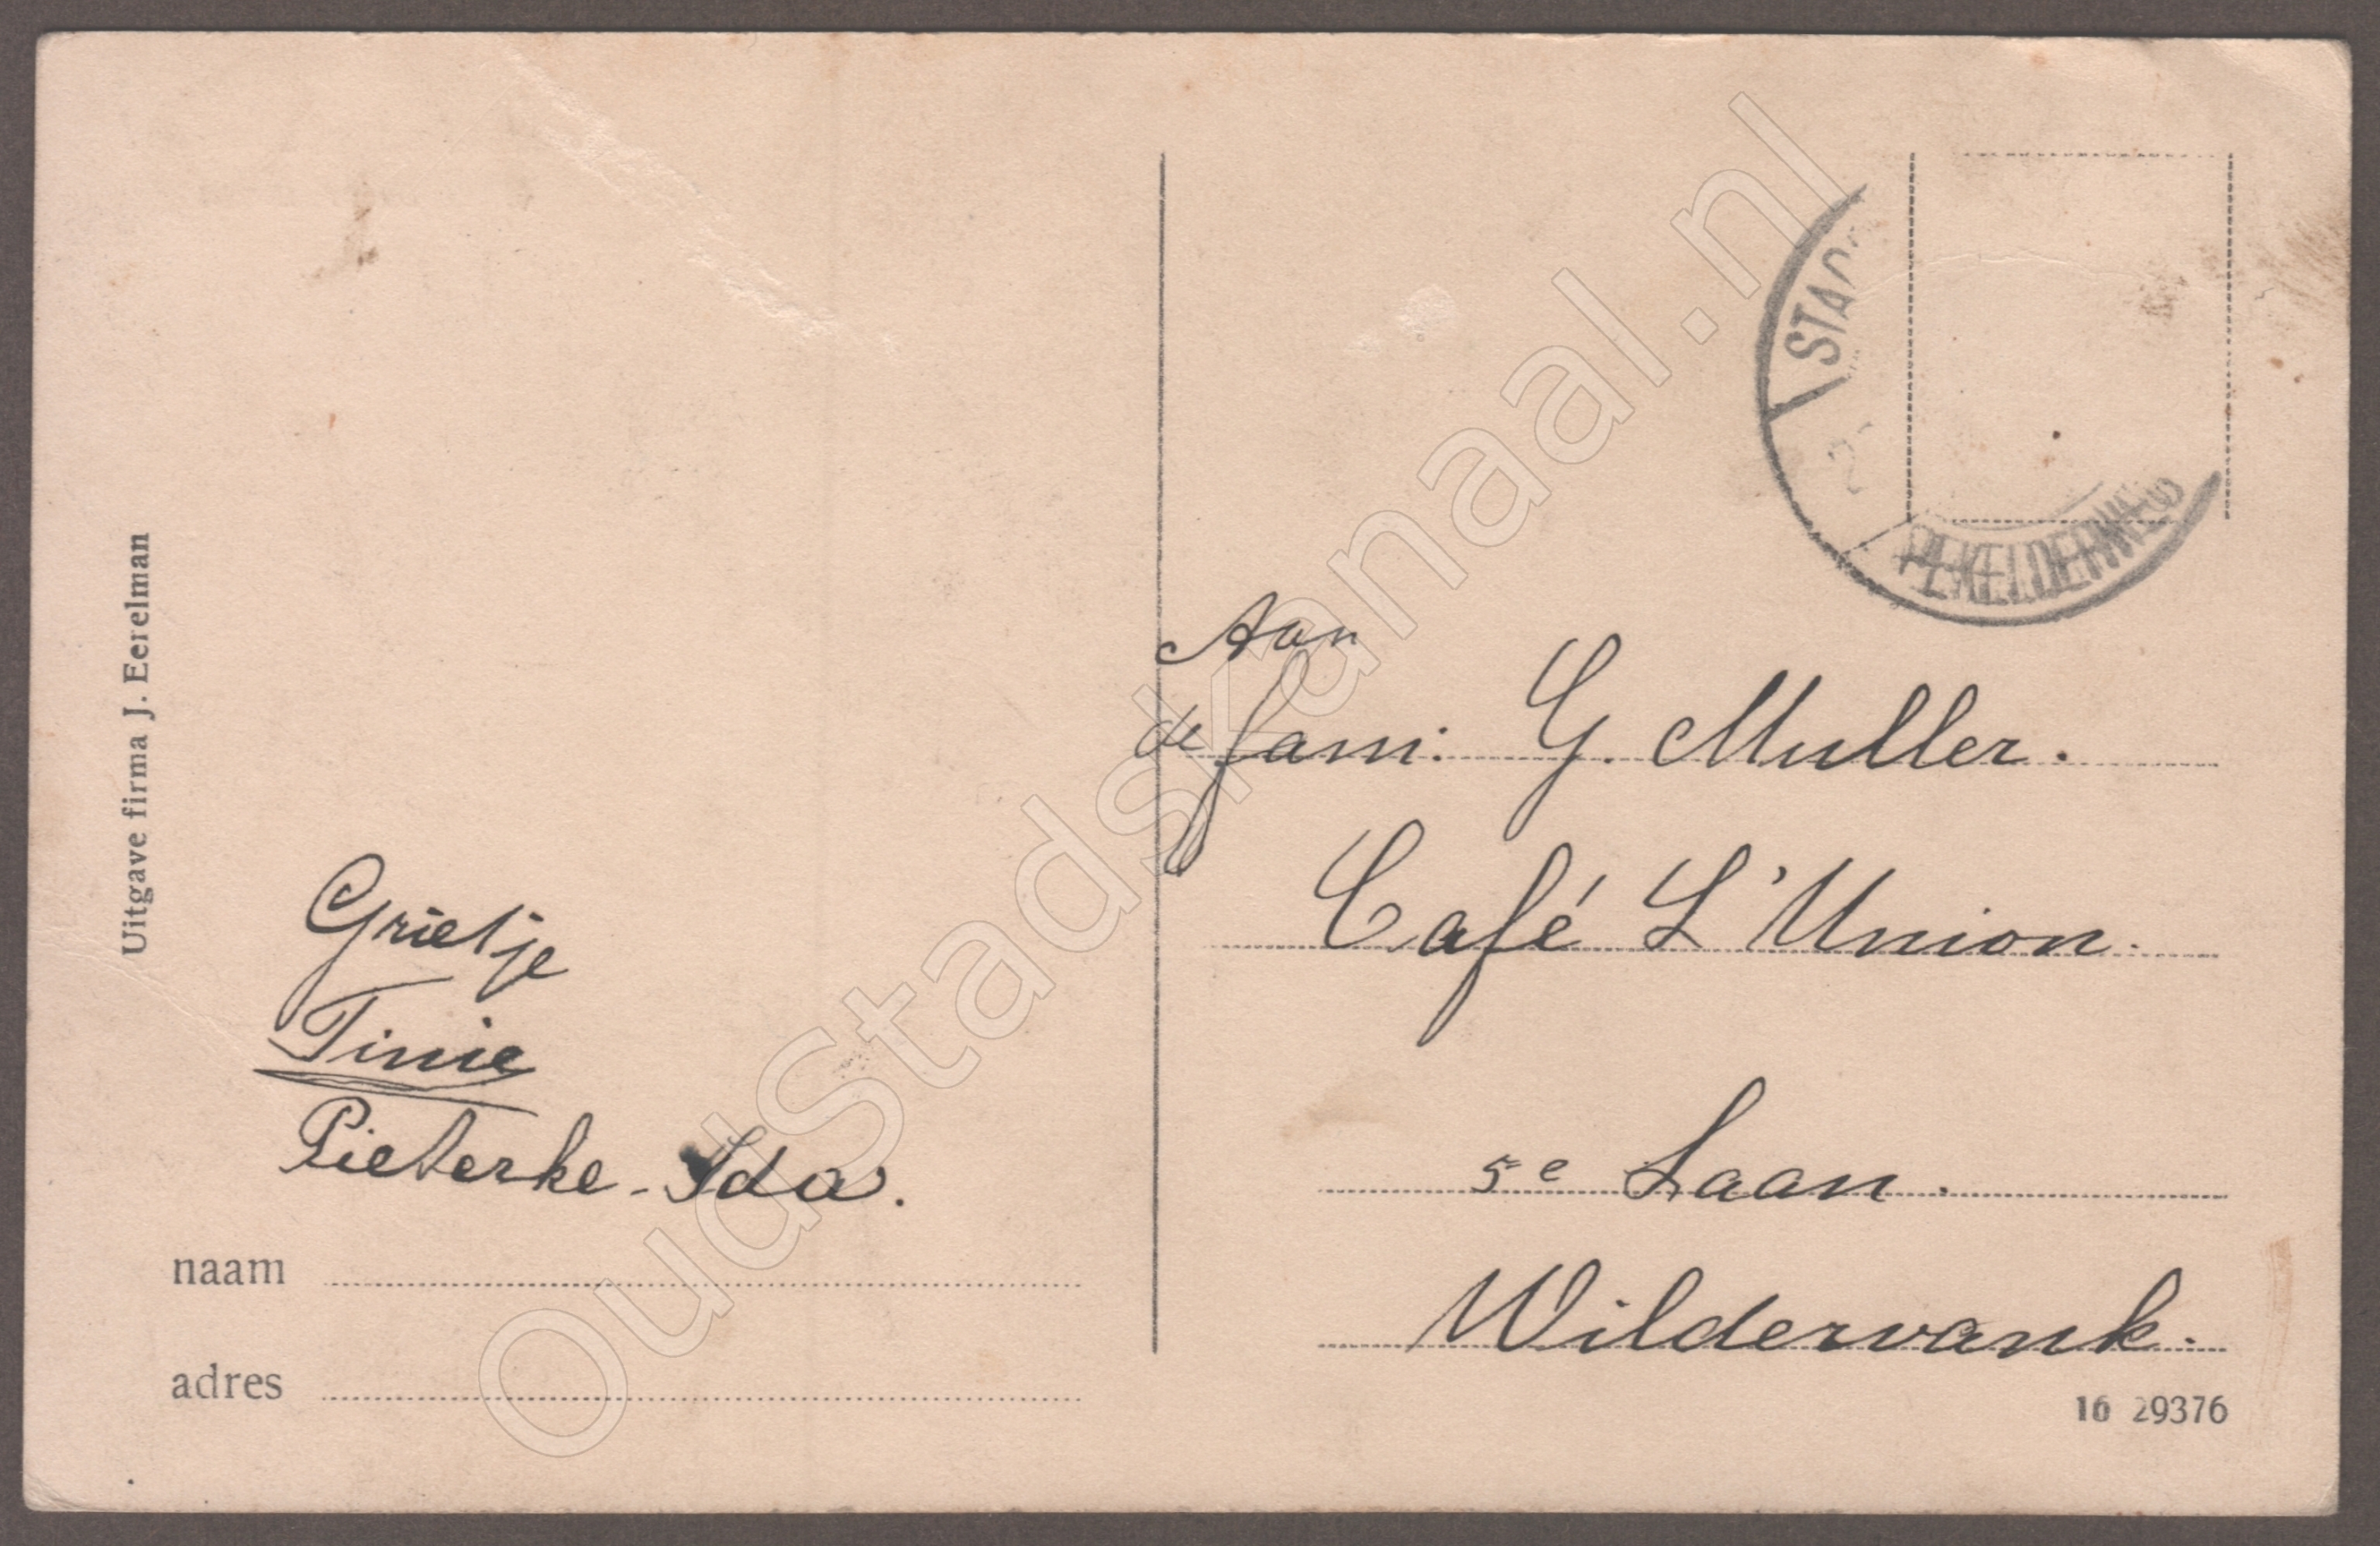 Uitgave firma J. Eerelman
Grietje
Tinie
Pieterke - Ida.
naam
adres
Aan
de fam: G. Muller.
Café L'Union.
5e Laan.
Wildervank.
16 29376
PEKELDERWEG
OudStadskanaal.nl